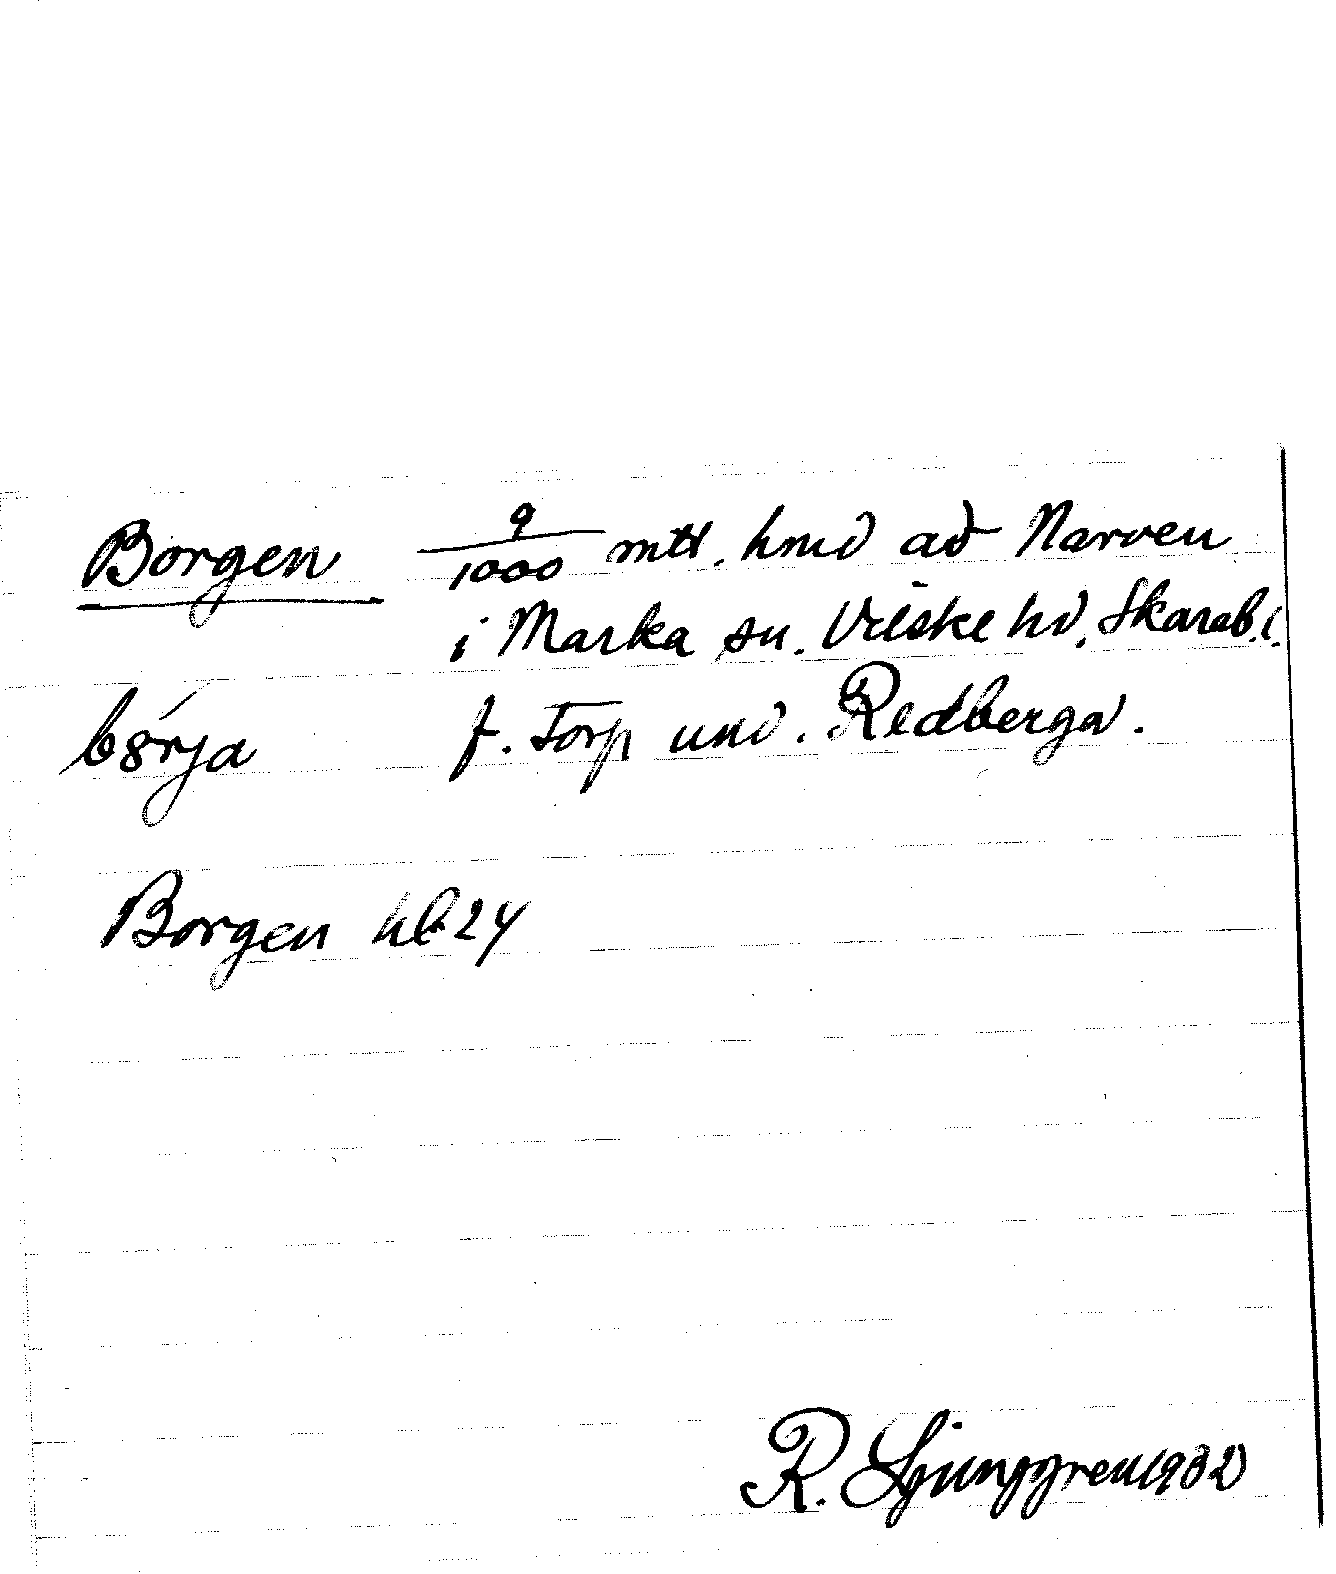 Borgen 9/1000 mtl. hmd av Narven
i Marka sn. Vilske hd, Skarab.l.
b8rja f. Torp und. Redberga.
Borgen hb 24
R. Ljunggren 1932